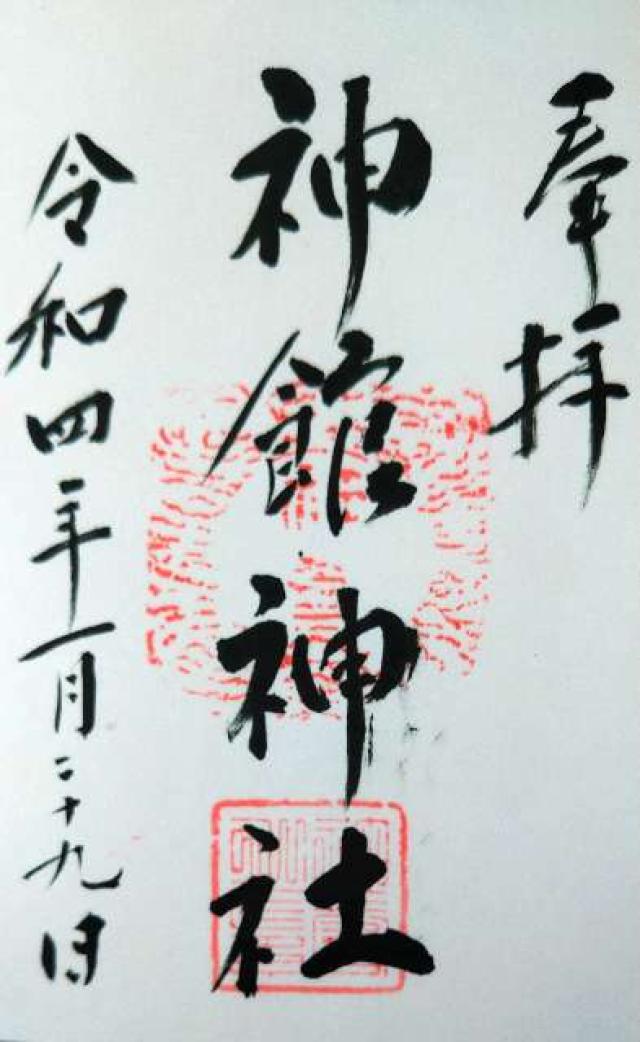 奉拝
神館神社
令和四年一月二十九日